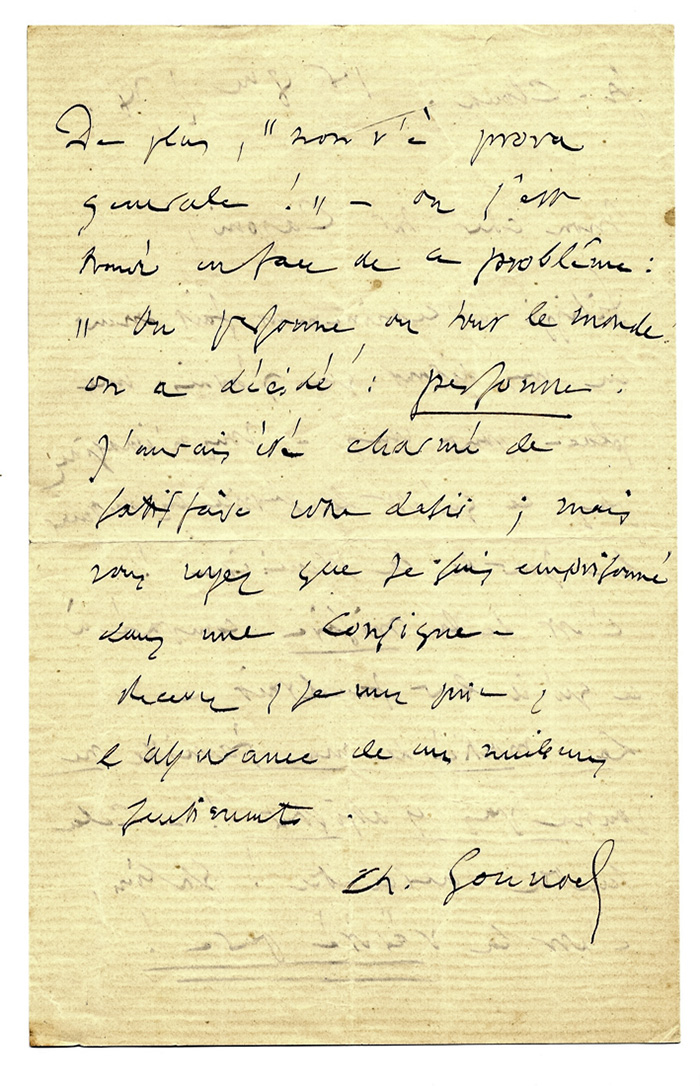 De plus, "non v'è prova
generale!" – on s'est
trouvé en face de ce problême:
"Ou personne ou tout le monde!
on a décidé: personne.
J'aurais été charmé de
satisfaire votre desir; mais
vous voyez que je suis emprisonné
dans une Consigne –
Recevez, je vous prie,
l'assurance de mes meilleurs
sentiments.
Ch. Gounod